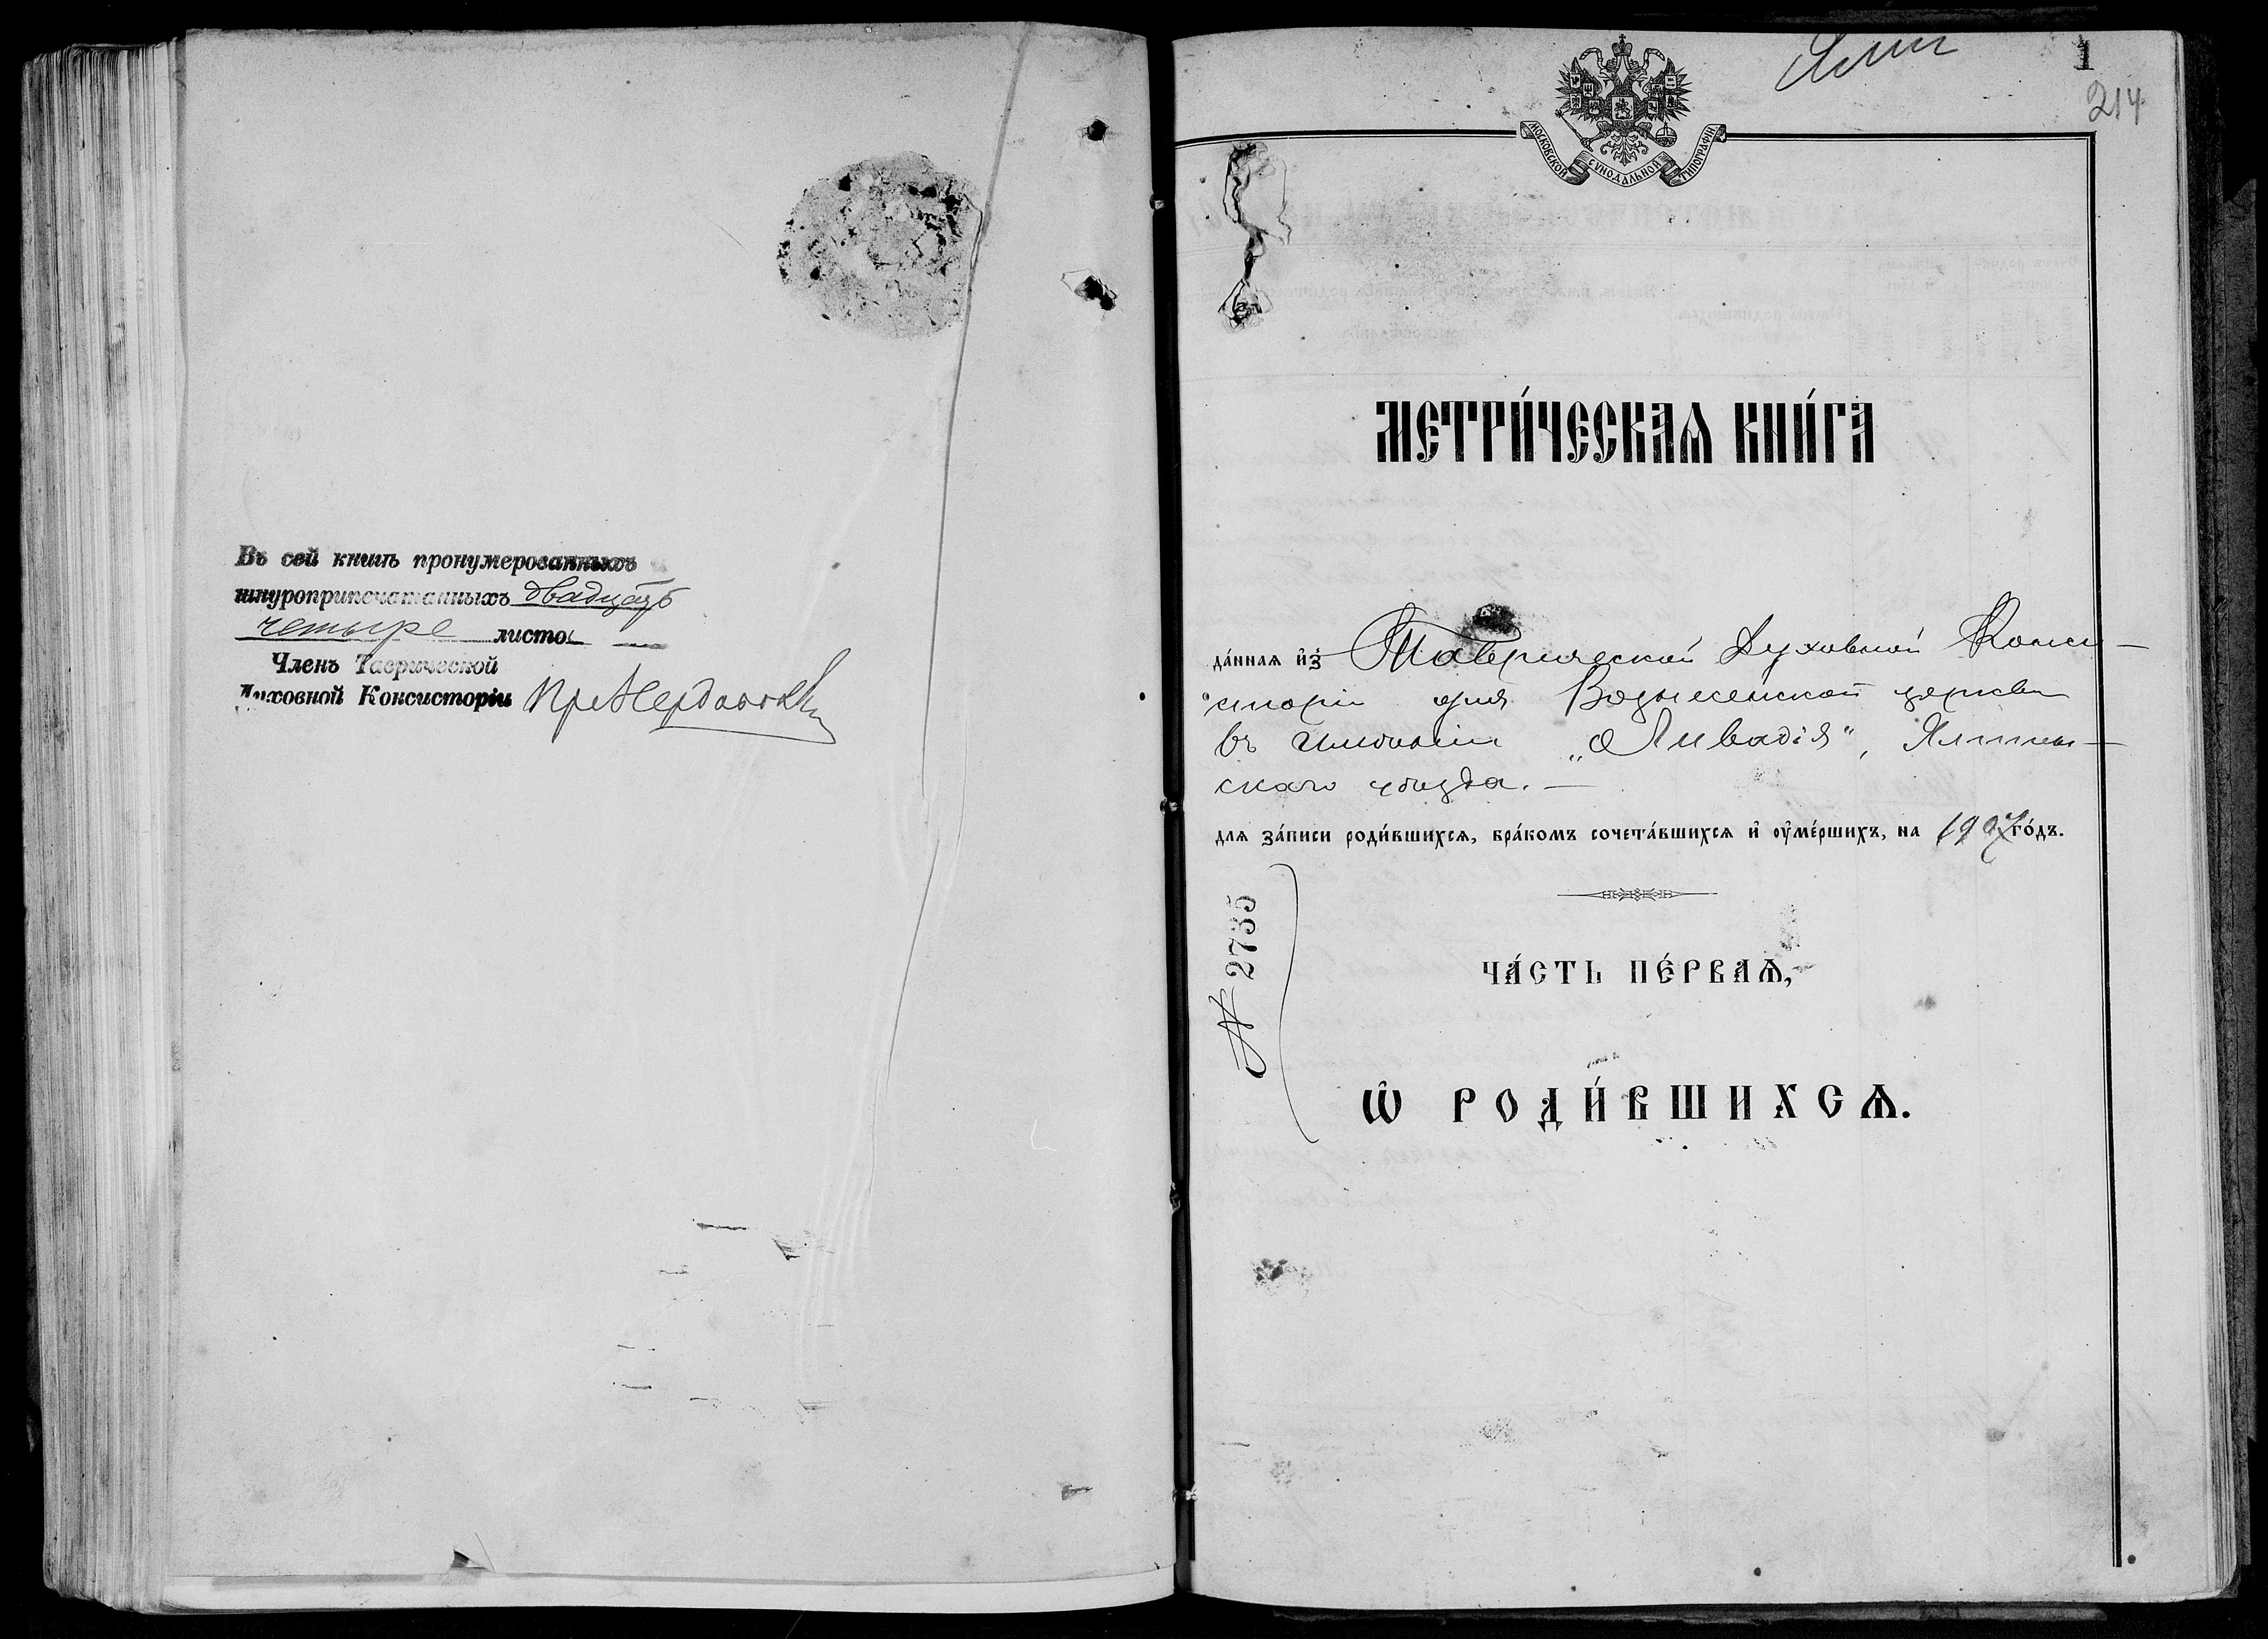 Въ сей книгѣ пронумерованныхъ
шнуроприпечатанныхъ двадцать
четыре листо
Членъ Таврической
Духовной Консисторіи
1
214
МОСКОВСКОЙ СѴНОДАЛЬНОЙ ТИПОГРАФІИ
МЕТРИ́ЧЕСКАѦ КНИ́ГА
да́нная и҆з̾ Таврической Духовной Конси-
сторіи для Вознесенской церкви
въ имѣніи „Ливадія", Ялтин-
скаго уѣзда. —
для за́писи роди́вшихся, бра́комъ сочета́вшихся и҆ ᲂу҆ме́ршихъ, на 1907 го́дъ.
№ 2735
ЧА́СТЬ ПЕ́РВАѦ,
Ѡ҆ РОДИ́ВШИХСѦ.